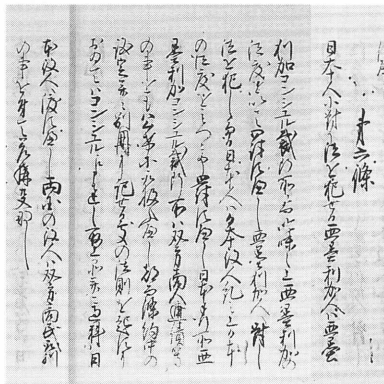 第六條
日本人に對し法を犯せる亜墨利加人ハ亜墨
利加コンシユル裁断所にて吟味之上亜墨利加の
法度を以て罰すへし亜墨利加人へ對し
法を犯したる日本人ハ日本役人糺之上日本
の法度を以て罰すへし日本奉行所亜
墨利加コンシユル裁断所ハ双方商人逋債等
の事をも公けに取扱ふへし 都て條約中の
規定并ニ別冊に記せる所の法則を犯すに
おゐてハコンシユルに申達し取上品并過料ハ日
本役人へ渡すへし両国の役人ハ双方商民取引
の事に付て差構ふ事なし